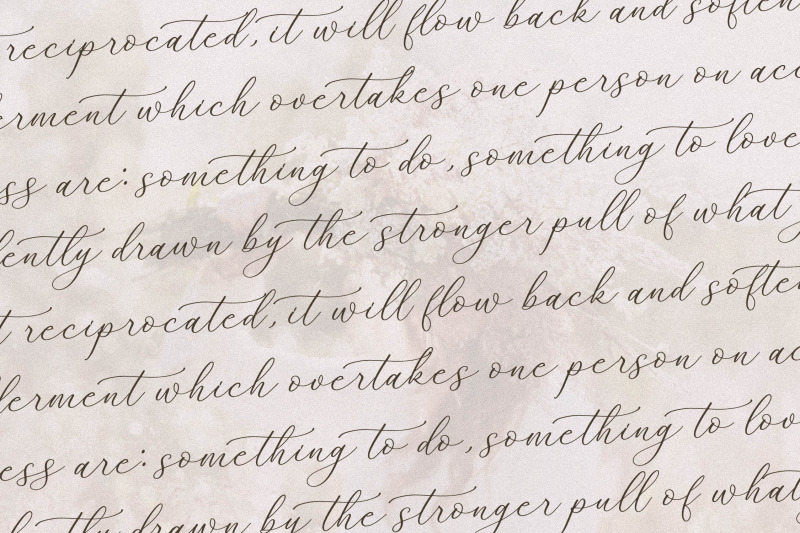 reciprocated, it will flow back and soften
erment which overtakes one person on acc
ss are: something to do, something to love
lently drawn by the stronger pull of what
t reciprocated, it will flow back and soften
lerment which overtakes one person on ac
ess are: something to do, something to lov
drawn by the stronger pull of what